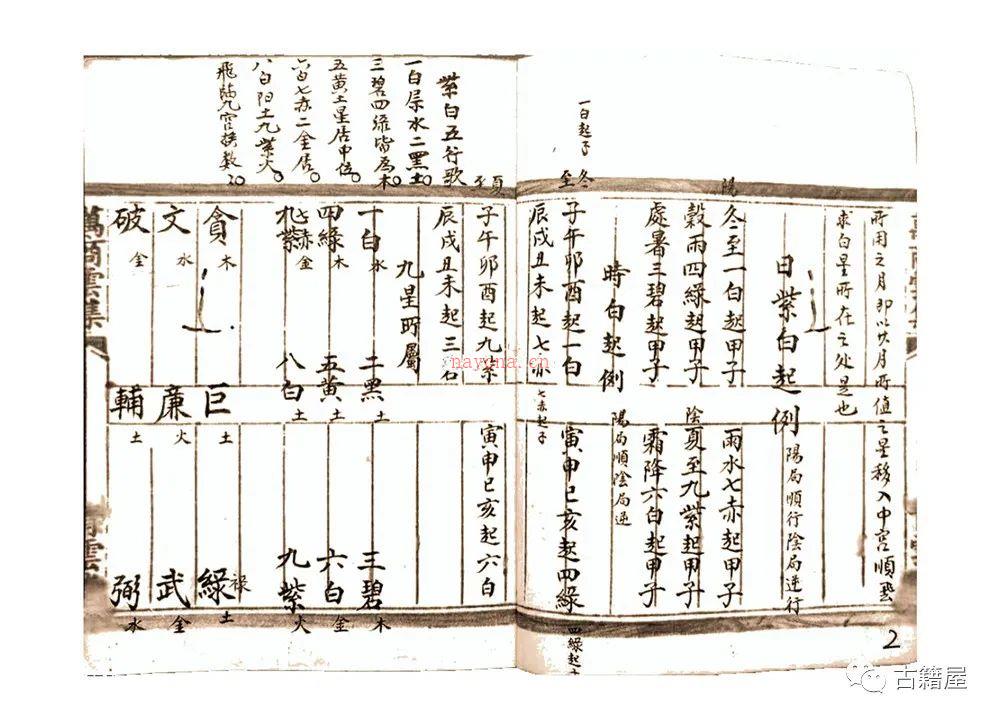 所用之月即以其月所值之星移入中宮順飛
求白星所在之处是也
日紫白起例 陽局順行陰局逆行
陽
冬至一白起甲子 雨水七赤起甲子
穀雨四綠起甲子 陰夏至九紫起甲子
處暑三碧起甲子 霜降六白起甲子
時白起例 陽局順陰局逆
一白起子
冬至
子午卯酉起一白 寅申巳亥起四綠
四綠起子
辰戌丑未起七赤
七赤起子
夏至
子午卯酉起九紫 寅申巳亥起六白
辰戌丑未起三
九星所屬
一白水 二黑土 三碧木
四綠木 五黃土 六白金
七赤金
九紫 八白土 九紫火
貪木 巨土 綠祿土
文水 廉火 武金
破金 輔土 弼水
紫白五行歌
一白居水二黑土
三碧四綠皆為木
五黃土星居中位
六白七赤二金居
八白阳土九紫火
飛臨九宮
萬商雲集
2
nayona.cn
古籍屋